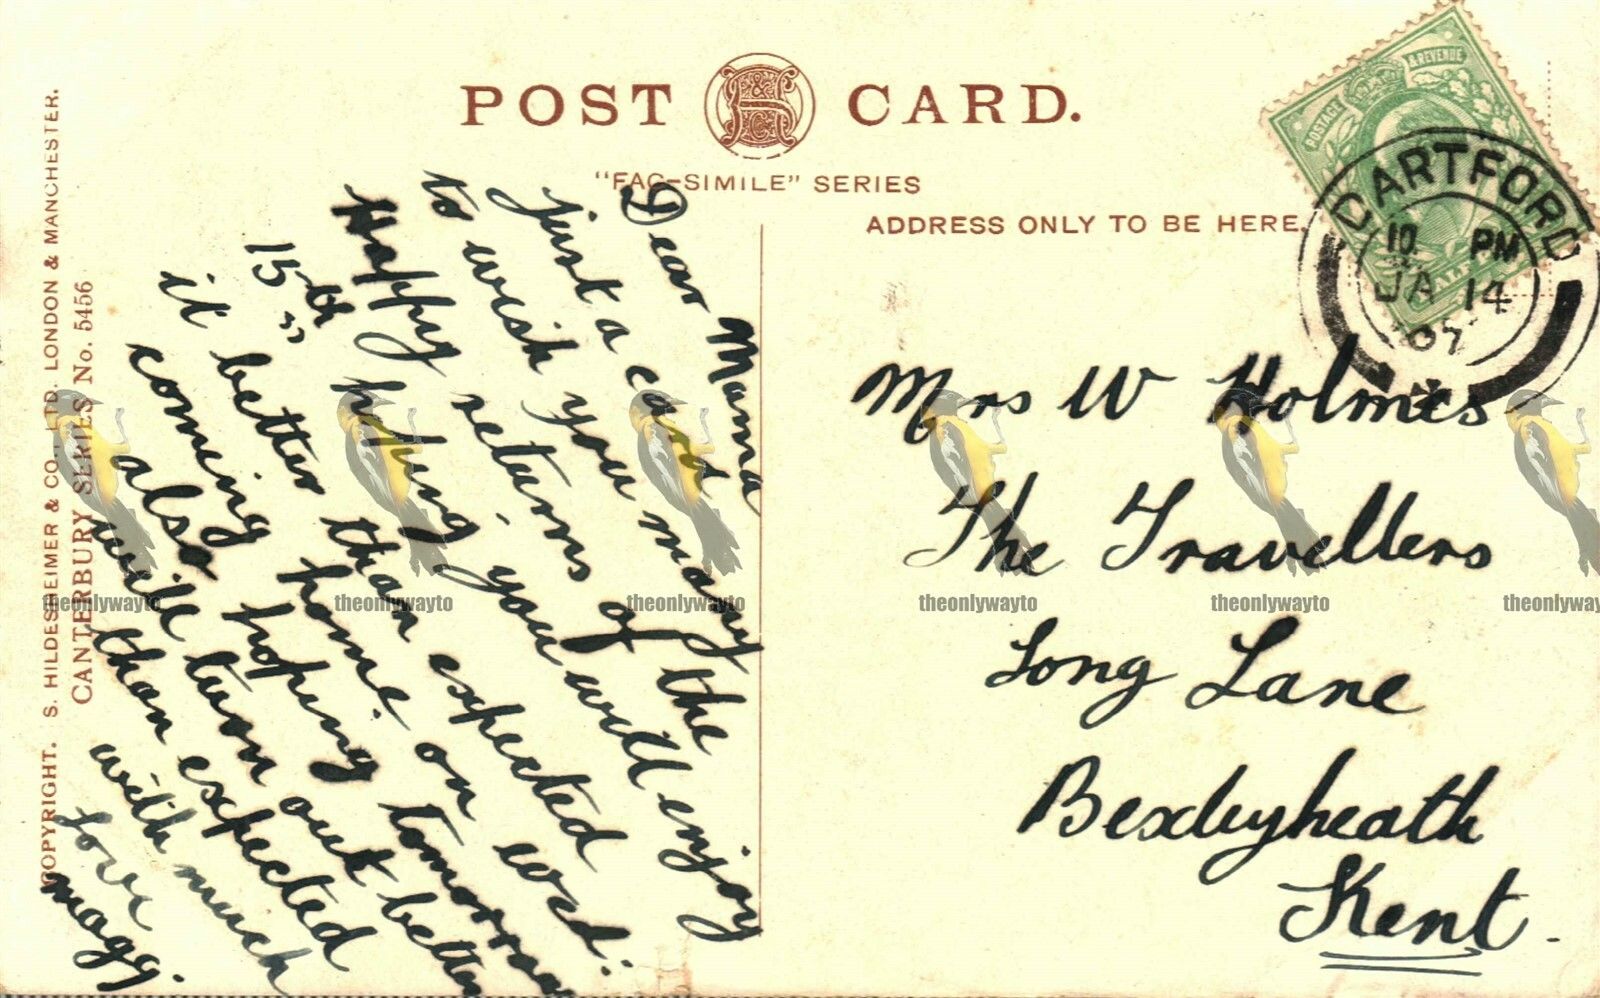 POST CARD.
"FAC-SIMILE" SERIES
ADDRESS ONLY TO BE HERE.
COPYRIGHT. S. HILDESHEIMER & CO., LTD. LONDON & MANCHESTER.
CANTERBURY SERIES No. 5456
POSTAGE & REVENUE
HALF
DARTFORD
10 PM
JA 14
07
Dear Mama
just a card
to wish you many
Happy returns of the
15th "
hoping you will enjoy
it better than expected
coming home on wed:
also hoping tomorrow
will turn out better
than expected
with much
love
mogg.
Mrs W Holmes
The Travellers
Long Lane
Bexleyheath
Kent.
theonlywayto
theonlywayto
theonlywayto
theonlywayto
theonlywayto
theonlyway